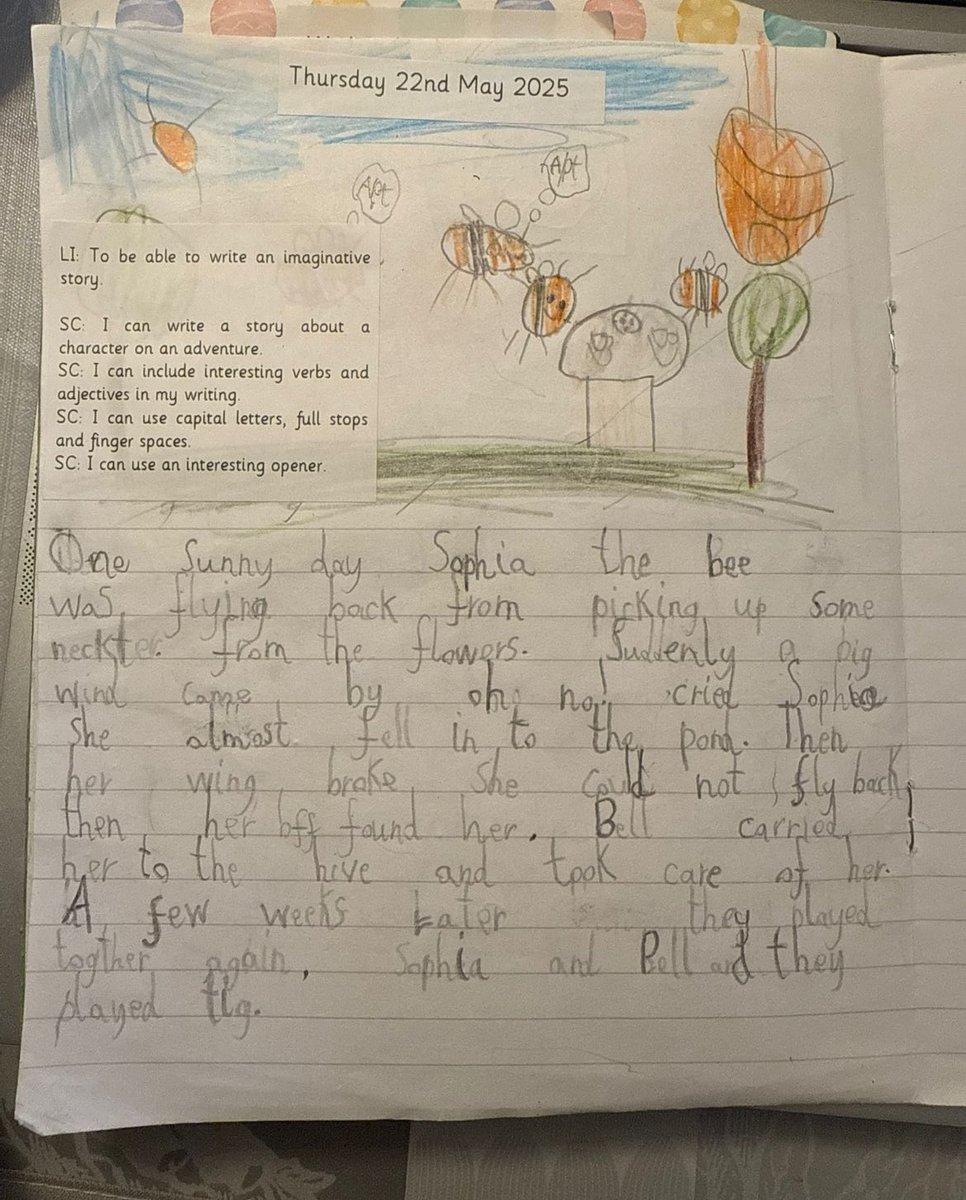 Thursday 22nd May 2025
Apt
Apt
LI: To be able to write an imaginative
story.
SC: I can write a story about a
character on an adventure.
SC: I can include interesting verbs and
adjectives in my writing.
SC: I can use capital letters, full stops
and finger spaces.
SC: I can use an interesting opener.
One Sunny day Sophia the bee
was flying back from picking up some
neckter. from the flowers. Suddenly a big
wind came by oh no! cried Sophia
She almost fell in to the pond. Then
her wing broke she could not fly back
then her bff found her. Bell carried
her to the hive and took care of her.
A few weeks Later they played
togther again. Sophia and Bell and they
played tig.